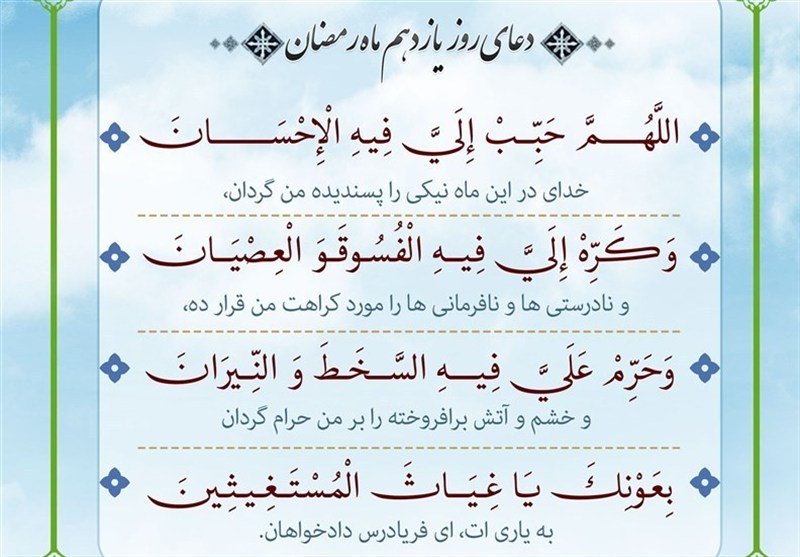 دعای روز یازدهم ماه رمضان
اللَّهُمَّ حَبِّبْ إِلَيَّ فِيهِ الْإِحْسَانَ
خدای در این ماه نیکی را پسندیده من گردان،
وَكَرِّهْ إِلَيَّ فِيهِ الْفُسُوقَوَ الْعِصْيَانَ
و نادرستی ها و نافرمانی ها را مورد کراهت من قرار ده،
وَحَرِّمْ عَلَيَّ فِيهِ السَّخَطَ وَ النِّيرَانَ
و خشم و آتش برافروخته را بر من حرام گردان
بِعَوْنِكَ يَا غِيَاثَ الْمُسْتَغِيثِينَ
به یاری ات، ای فریادرس دادخواهان.